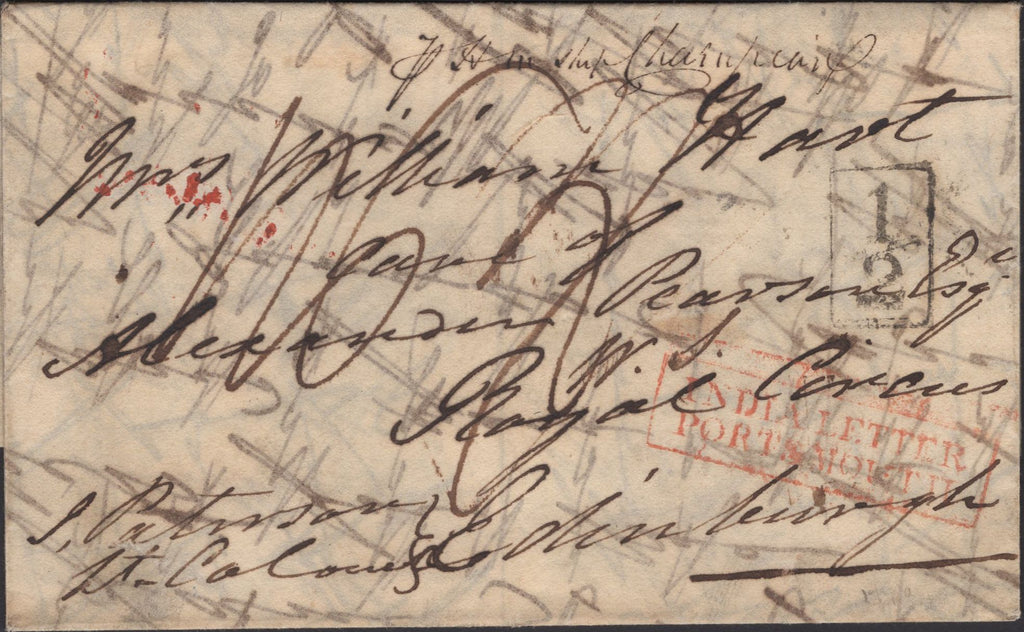 ship
Mrs William Hart
Care of
Alexander Pearson Esqr
W. S.
Royal Circus
Edinburgh
J. Paterson
Lt. Colonel
1
2
INDIA LETTER
PORTSMOUTH